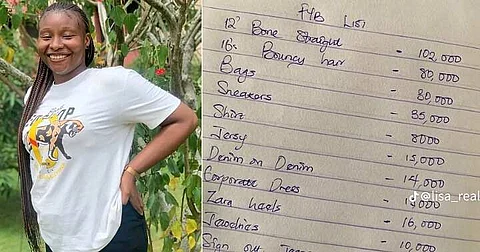 P/B LIST
12" Bone Straight - 102,000
16s Bouncy hair - 80,000
Bags - 80,000
Sneakers - 35,000
Shirt - 8000
Jersy - 15,000
Denim on Denim - 14,000
Corporate Dress
Zara heels - 16,000
- 10,000
Sign out
@lisa_real